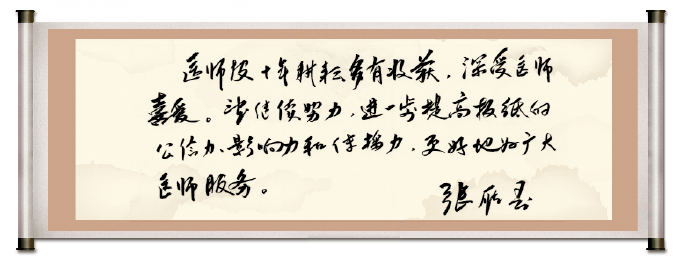 医师报十年耕耘多有收获，深受医师
喜爱。请继续努力，进一步提高报纸的
公信力、影响力和传播力，更好地为广大
医师服务。
张雁灵